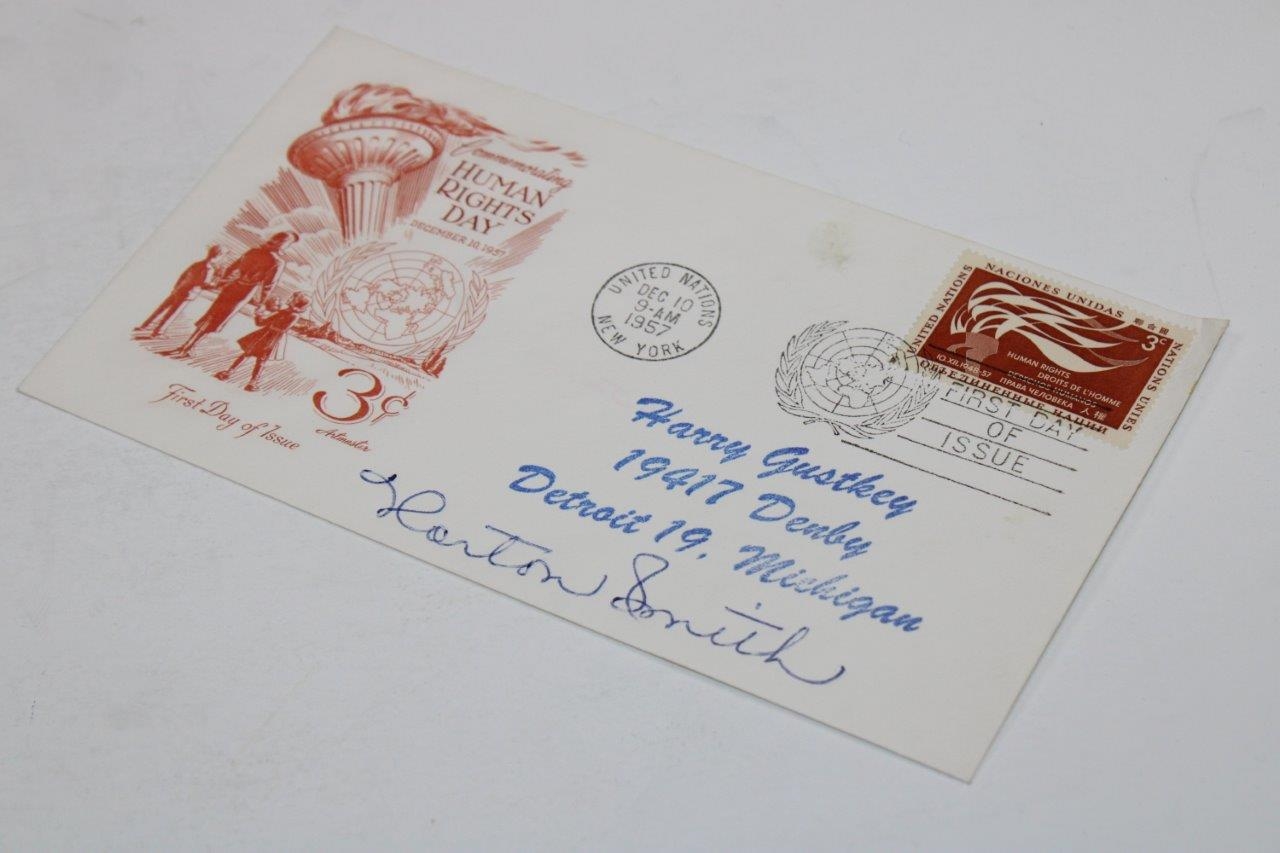 Commemorating
HUMAN
RIGHTS
DAY
DECEMBER 10, 1957
3¢
First Day of Issue
Artmaster
UNITED NATIONS
DEC 10
9-AM
1957
NEW YORK
NACIONES UNIDAS
聯合國
UNITED NATIONS
NATIONS UNIES
3c
HUMAN RIGHTS
10.XII.1948-57
DROITS DE L'HOMME
DERECHOS HUMANOS
ПРАВА ЧЕЛОВЕКА 人權
ОБЪЕДИНЕННЫЕ НАЦИИ
FIRST DAY
OF
ISSUE
Harry Gustkey
19417 Denby
Detroit 19, Michigan
Horton Smith